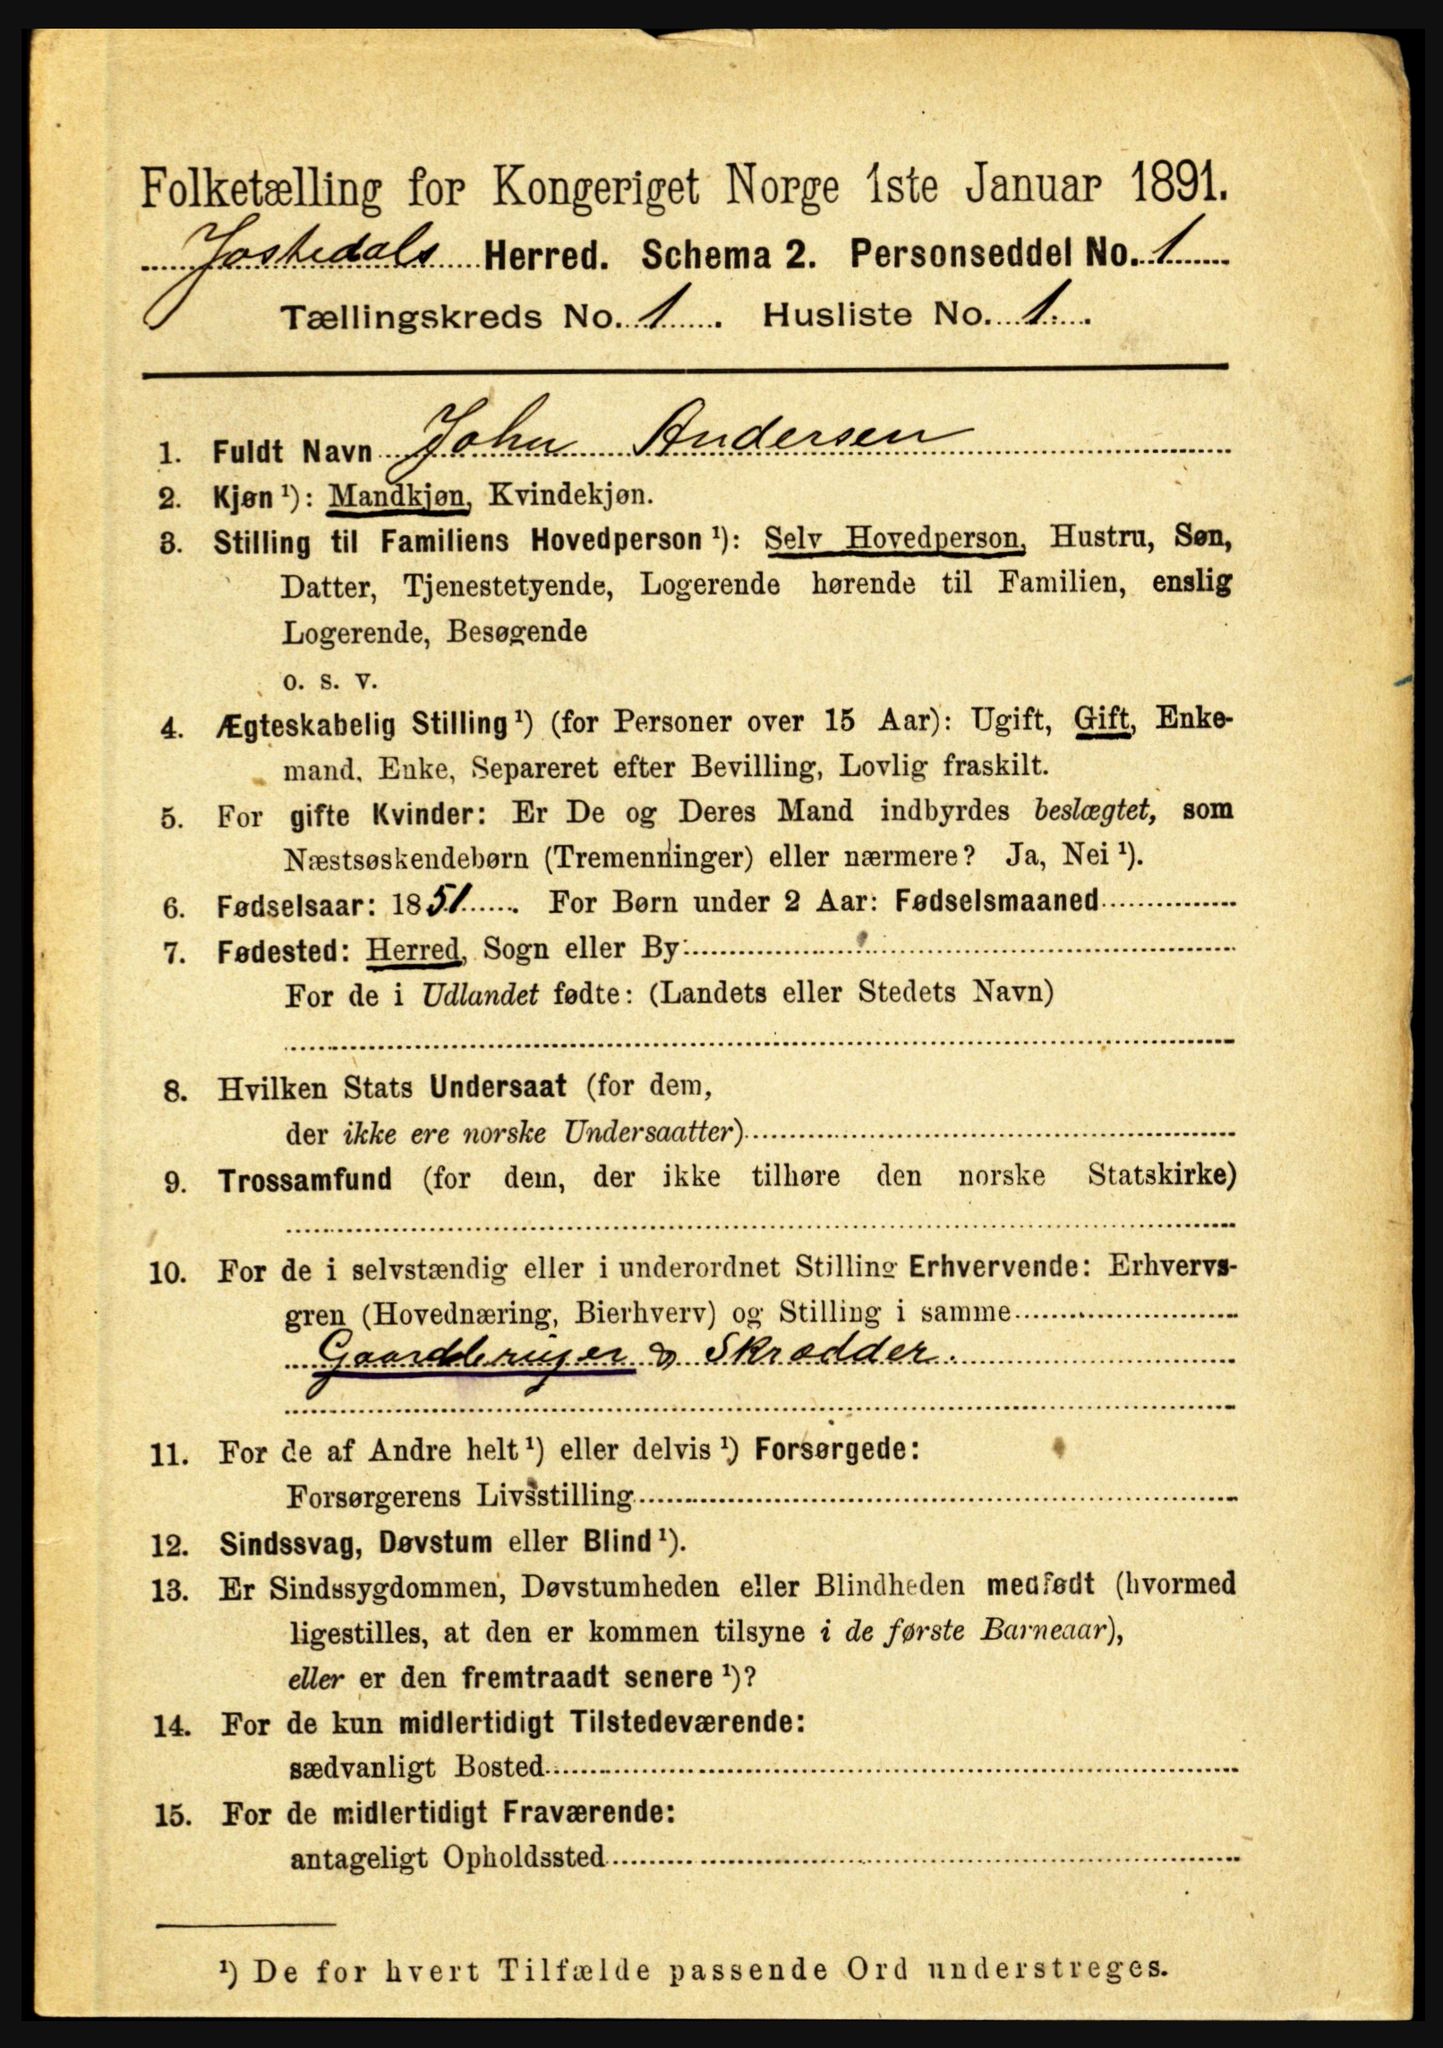 Folketælling for Kongeriget Norge 1ste Januar 1891.
Jostedals Herred. Schema 2. Personseddel No. 1
Tællingskreds No. 1. Husliste No. 1.
1. Fuldt Navn John Andersen
2. Kjøn ¹): Mandkjøn, Kvindekjøn.
3. Stilling til Familiens Hovedperson ¹): Selv Hovedperson, Hustru, Søn,
Datter, Tjenestetyende, Logerende hørende til Familien, enslig
Logerende, Besøgende
o. s. v.
4. Ægteskabelig Stilling ¹) (for Personer over 15 Aar): Ugift, Gift, Enke-
mand, Enke, Separeret efter Bevilling, Lovlig fraskilt.
5. For gifte Kvinder: Er De og Deres Mand indbyrdes beslægtet, som
Næstsøskendebørn (Tremenninger) eller nærmere? Ja, Nei ¹).
6. Fødselsaar: 1851. For Børn under 2 Aar: Fødselsmaaned
7. Fødested: Herred, Sogn eller By
For de i Udlandet fødte: (Landets eller Stedets Navn)
8. Hvilken Stats Undersaat (for dem,
der ikke ere norske Undersaatter)
9. Trossamfund (for dem, der ikke tilhøre den norske Statskirke)
10. For de i selvstændig eller i underordnet Stilling Erhvervende: Erhvervs-
gren (Hovednæring, Bierhverv) og Stilling i samme
Gaardbruger & Skrædder.
11. For de af Andre helt ¹) eller delvis ¹) Forsørgede:
Forsørgerens Livsstilling
12. Sindssvag, Døvstum eller Blind ¹).
13. Er Sindssygdommen, Døvstumheden eller Blindheden medfødt (hvormed
ligestilles, at den er kommen tilsyne i de første Barneaar),
eller er den fremtraadt senere ¹)?
14. For de kun midlertidigt Tilstedeværende:
sædvanligt Bosted
15. For de midlertidigt Fraværende:
antageligt Opholdssted
¹) De for hvert Tilfælde passende Ord understreges.